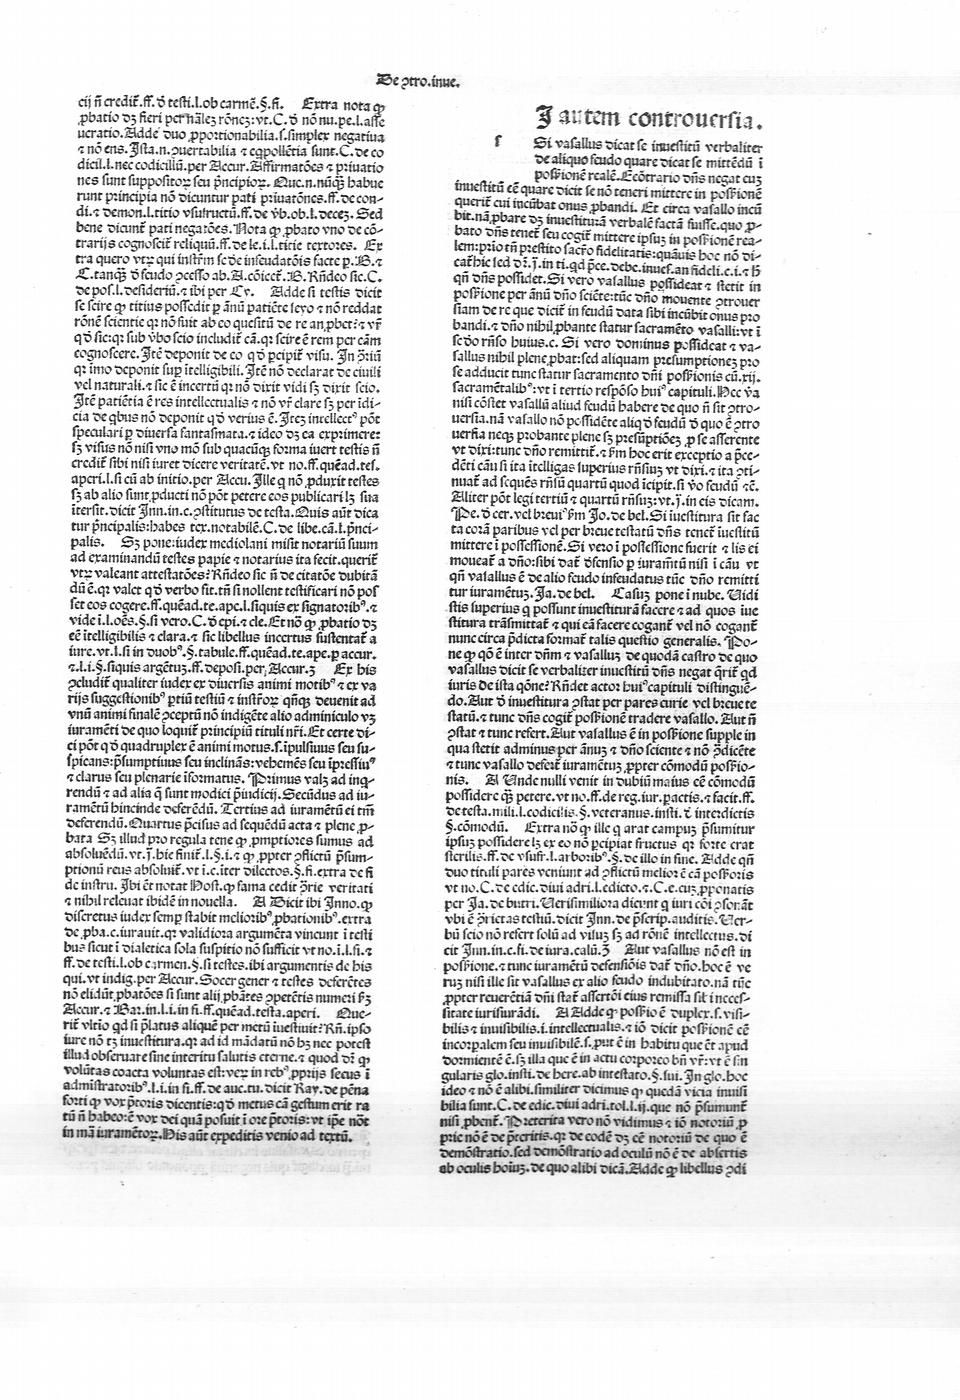 De ꝯtro.inue.
cij ñ credit̃.ff.ð testi.l.ob carmẽ.§.fi. Extra nota ꝙ
ꝓbatio dꝫ fieri per
ueratio. Adde duo ꝓportionabilia.s.simplex negatiua
⁊ nõ ens. Ista.n.ꝯuertabilia ⁊ eqpollẽtia sunt.C.de co
dicil.l.nec codicillũ.per Accur. Affirmatões ⁊ priuatio
nes sunt suppositoꝝ seu pͥncipioꝝ. Que.n.nũqͣꝫ habue
runt principia nõ dicuntur pati priuatõnes.ff.de con-
di.⁊ demon.l.titio vsufructũ.ff.de v̑b.ob.l.deceꝫ. Sed
bene dicunt̃ pati negatões. Nota ꝙ ꝓbato vno de cõ-
trarijs cognoscit̃ reliquũ.ff.de le.i.l.titie textores. Ex
tra quero
C.tanqͣꝫ ð feudo ꝓcesso ab.A.cõicct̃.B. Rñdeo sic.C.
de pos.l.desideriũ.⁊ ibi per Cy. Adde si testis dicit
se scire ꝙ titius possedit ꝑ ãnũ patiẽte seyo ⁊ nõ reddat
rõnẽ scientie
cognoscere. Itẽ deponit de eo
vel naturali.⁊ sic ẽ incertũ qꝛ nõ dixit vidi sꝫ dixit scio.
Itẽ patiẽtia ẽ res intellectualis ⁊ nõ
speculari ꝑ diuersa fantasmata.⁊ ideo dꝫ ea exprimere:
sꝫ visus nõ nisi vno mõ sub quacũqꝫ forma iuert testis ñ
credit̃ sibi nisi iuret dicere veritatẽ.vt no.ff.quẽad.tes.
aperi.l.si cũ ab initio.per Accu. Ille q nõ ꝓduxit testes
sꝫ ab alio sunt ꝓducti nõ põt petere eos publicari lꝫ sua
iter̃sit.dicit Inn.in.c.ꝯstitutus de testa. Quis aũt dica
tur pͥncipalis:habes tex.notabilẽ.C.de libe.cã.l.pͥnci-
palis. Sꝫ pone:iudex mediolani misit notariũ suum
ad examinandũ testes papie ⁊ notarius ita fecit.querit̃
vtꝝ valeant attestatões? Rñdeo sic ñ de citatõe dubitã
dũ ẽ.qꝛ valet qð verbo fit.tñ si nollent testificari nõ pos
set eos cogere.ff.quẽad.te.ape.l.siquis ex signatoribꝰ.⁊
vide i.l.oẽs.§.si vero.C.ð epi.⁊ cle. Et nõ ꝙ ꝓbatio dꝫ
eẽ itelligibilis ⁊ clara.⁊ sic libellus incertus sustentat̃ a
iure.vt.l.si in duobꝰ.§.tabule.ff.quẽad.te.ape.ꝑ accur.
⁊.l.i.§.siquis argẽtuꝫ.ff.deposi.per Accur. Ex his
ꝯcludit̃ qualiter iudex ex diuersis animi motibꝰ ⁊ ex va
rijs suggestionibꝰ ꝑtiũ testiũ ⁊ instr̃oꝝ qñqꝫ deuenit ad
vnũ animi finalẽ ꝯceptũ nõ indigẽte alio adminiculo vꝫ
iuramẽti de quo loquit̃ principiũ tituli nr̃i. Et certe di-
ci põt qð quadruplex ẽ animi motus.s.ipulsiuus seu su-
spicans:p̃sumptiuus seu inclinãs:vehemẽs seu ip̃ressiuꝰ
⁊ clarus seu plenarie iformatus. Primus valꝫ ad inq-
rendũ ⁊ ad alia q̃ sunt modici p̃iudicij. Secũdus ad iu-
ramẽtũ hincinde deferẽdũ. Tertius ad iuramẽtũ ei tm̃
deferendũ. Quartus p̃cisus ad sequẽdũ acta ⁊ plene ꝓ-
bata Sꝫ illud pro regula tene ꝙ ꝓmptiores sumus ad
absoluẽdũ.vt.j.hic finit̃.l.§.i.⁊ ꝙ ꝓpter ꝯflictũ p̃sum-
ptionũ reus absoluit̃.vt i.c.iter dilectos.§.fi.extra de fi
de instru. Ibi ẽt notat Host.ꝙ fama cedit ꝯ̃rie veritati
⁊ nihil releuat ibidẽ in nouella. A Dicit ibi Inno.ꝙ
discretus iudex semꝑ stabit melioribꝰ ꝓbationibꝰ.extra
de ꝓba.c.iurauit.qꝛ validiora argumẽta vincunt i testi
bus sicut i dialetica sola suspitio nõ sufficit vt no.i.l.si.⁊
ff.de testi.l.ob carmen.§.si testes.ibi argumentis de his
qui.vt indig.per Accur. Socer gener ⁊ testes deferẽtes
nõ elidũt ꝓbatões si sunt alij ꝓbãtes ꝯpetẽtis numeri
Accur.⁊ Bar.in.l.i.in fi.ff.quẽad.testa.aperi. Que-
rit̃ vltĩo qd si p̃latus aliquẽ per metũ iuestiuit? Rñ.ipso
iure nõ tꝫ inuestitura.qꝛ ad id mãdatũ nõ hꝫ nec potest
illud obseruare sine interitu salutis eterne.⁊ quod dr̃ ꝙ
volũtas coacta voluntas est:veꝝ in rebꝰ ꝓprijs secus i
admistratoribꝰ.l.i.in fi.ff.de auc.tu.dicit Ray.de pẽna
forti ꝙ vox p̃toris dicentis:qð metus cã gestum erit ra
tũ ñ habeo:ẽ vox dei quã posuit i ore p̃toris:vt ip̃e nõt
in mã iuramẽtoꝝ. His aũt expeditis venio ad textũ.
I autem controuersia.
s Si vasallus dicat se inuestitũ verbaliter
de aliquo feudo quare dicat se mittẽdũ i
possionẽ realẽ. Ecõtrario dñs negat euꝫ
inuestitũ eẽ quare dicit se nõ teneri mittere in possionẽ
querit̃ cui incũbat onus ꝓbandi. Et circa vasallo incũ
bit.nã ꝓbare dꝫ inuestiturã verbalẽ factã fuisse.quo ꝓ-
bato dñs tenet̃ seu cogit̃ mittere ipsuꝫ in possionẽ rea-
lem:prio tñ p̃stito sacr̃o fidelitatis:quãuis hoc nõ di-
cat̃ hic sed dr̃.j.in ti.qd p̃ce.debe.inues.an fideli.c.i.⁊
qñ dñs possidet. Si vero vasallus possideat ⁊ stetit in
possione per ãnũ dño sciẽte:tũc dño mouente ꝯtrouer
siam de re que dicit̃ in feudũ data sibi incũbit onus pro
bandi.⁊ dño nihil ꝓbante statur sacramẽto vasalli:vt i
sc̃do rñso huius.c. Si vero dominus possideat ⁊ va-
sallus nihil plene ꝓbat:sed aliquam presumptioneꝫ pro
se adducit tunc statur sacramento dñi possionis cũ.xij.
sacramẽtalibꝰ:vt i tertio respõso huiꝰ capituli. Hec v̑a
nisi cõstet vasallũ aliud feudũ habere de quo ñ sit ꝯtro-
uersia.nã vasallo nõ possidẽte aliqð feudũ ð quo ẽ ꝯtro
uersia neqꝫ probante plene sꝫ p̃suptiõeꝫ ꝓ se asserente
vt dixi:tunc dño remittit̃.⁊ hoc erit exceptio a p̃ce-
dẽti cãu si ita itelligas superius rñsuꝫ vt dixi.⁊ ita ꝯti-
nuat̃ ad seq̃ẽs rñsũ quartũ quod icipit.si v̑o feudũ ⁊c̃.
Aliter põt legi tertiũ ⁊ quartũ rñsuꝫ:vt.j.in eis dicam.
Pe.ð cer.vel breui Jo.de bel. Si iuestitura sit fac
ta corã paribus vel per breue testatũ dñs tenet̃ iuestitũ
mittere i possessionẽ. Si vero i possessione fuerit ⁊ lis ei
moueat̃ a dño:sibi dat̃ ð̃sensio ꝑ iuram̃tũ nisi i cãu vt
qñ vasallus ẽ de alio feudo infeudatus tũc dño remitti
tur iuramẽtuꝫ. Ja.de bel. Casuꝫ pone i nube. Uidi
stis superius q possunt inuestiturã facere ⁊ ad quos iue
stitura trãsmittat̃ ⁊ qui eã facere cogant̃ vel nõ cogant̃
nunc circa p̃dicta format̃ talis questio generalis. Po-
ne ꝙ qõ ẽ inter dñm ⁊ vasalluꝫ de quodã castro de quo
vasallus dicit se verbaliter inuestitũ dñs negat q̃rit̃ qd
iuris de ista qõne? Rñdet actor huiꝰ capituli distinguẽ-
do. Aut ð inuestitura ꝯstat per pares curie vel breue te
statũ.⁊ tunc dñs cogit̃ possionẽ tradere vasallo. Aut ñ
ꝯstat ⁊ tunc refert. Aut vasallus ẽ in possione supple in
qua stetit adminus per ãnuꝫ ⁊ dño sciente ⁊ nõ ꝯ̃dicẽte
⁊ tunc vasallo defert̃ iuramẽtuꝫ ꝓpter cõmodũ possio-
nis. A Unde nulli venit in dubiũ maius eẽ cõmodũ
possidere qͣꝫ petere.vt no.ff.de reg.iur.ꝑactis.⁊ facit.ff.
de testa.mili.l.codicilis.§.veteranus.insti.ð interdictis
§.cõmodũ. Extra nõ ꝙ ille q arat campuꝫ p̃sumitur
ipsuꝫ possidere lꝫ ex eo nõ pcipiat fructus qꝛ forte erat
sterilis.ff.de vsufr.l.arboribꝰ.§.de illo in fine. Adde qñ
duo tituli pares veniunt ad ꝯflictũ melior ẽ cã possoris
vt no.C.de edic.diui adri.l.edicto.⁊.C.e.cuꝫ ꝓponatis
per Ja.de butri. Uerisimiliora dicunt̃ q iuri cõi ꝯsonãt
vbi ẽ ꝯ̃rietas testiũ.dicit Inn.de p̃scrip.auditis. Uer-
bũ scio nõ refert solũ ad visuꝫ sꝫ ad rõnẽ intellectus.di
cit Inn.in.c.fi.de iura.calũ. Aut vasallus nõ est in
possione.⁊ tunc iuramẽtũ defensiõis dat̃ dño.hoc ẽ ve
ruꝫ nisi ille sit vasallus ex alio feudo indubitato.nã tũc
ꝓpter reuerẽtiã dñi stat̃ assertõi eius remissa sit i neces-
sitate iurisiurãdi. A Adde ꝙ possio ẽ duplex.s.visi-
bilis ⁊ inuisibilis.i.intellectualis.⁊ iõ dicit possionẽ eẽ
incorpalem seu inuisibilẽ.s.put ẽ in habitu que ẽt apud
dormientẽ ẽ.sꝫ illa que ẽ in actu corporeo bñ vr̃:vt ẽ sin
gularis glo.insti.de here.ab intestato.§.sui. In glo.hoc
ideo ⁊ nõ ẽ alibi.similiter dicimus ꝙ quedã vicia inuisi
bilia sunt.C.de edic.diui adri.tol.l.ij.que nõ p̃sumunt̃
nisi ꝓbent̃. Preterita vero nõ vidimus ⁊ iõ notoriũ ꝓ
prie nõ ẽ de p̃teritis.qꝛ de eodẽ dꝫ eẽ notoriũ de quo ẽ
demõstratio.sed demõstratio ad oculũ nõ ẽ de absertis
ab oculis hoiuꝫ.de quo alibi dicã. Adde ꝙ libellus ꝯdi